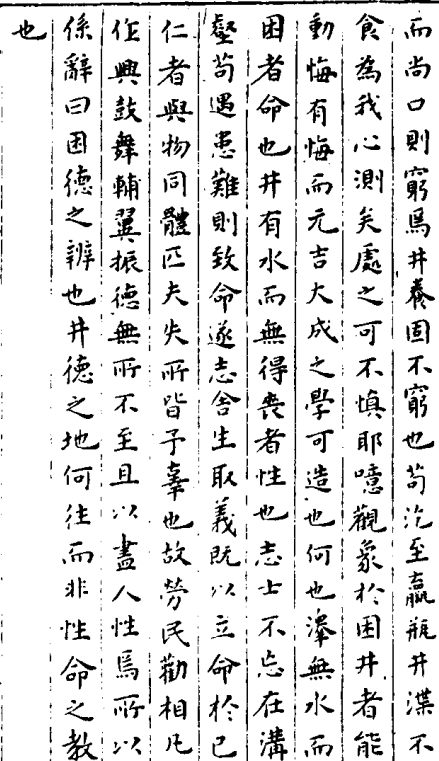 而尚口則窮焉井養固不窮也苟汔至羸瓶井渫不
食為我心測矣處之可不慎耶噫觀象於困井者能
動悔有悔而元吉大成之學可造也何也澤無水而
困者命也井有水而無得喪者性也志士不忘在溝
壑苟遇患難則致命遂志舍生取義既以立命於己
仁者與物同體匹夫失所皆予辜也故勞民勸相凡
作興鼓舞輔翼振德無所不至且以盡人性焉所以
係辭曰困德之辨也井德之地何往而非性命之教
也